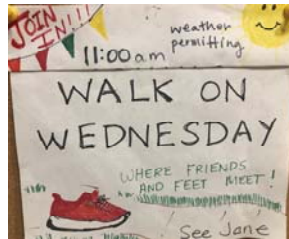 JOIN
IN!!!
11:00am
weather
permitting
WALK ON
WEDNESDAY
WHERE FRIENDS
AND FEET MEET!
See Jane